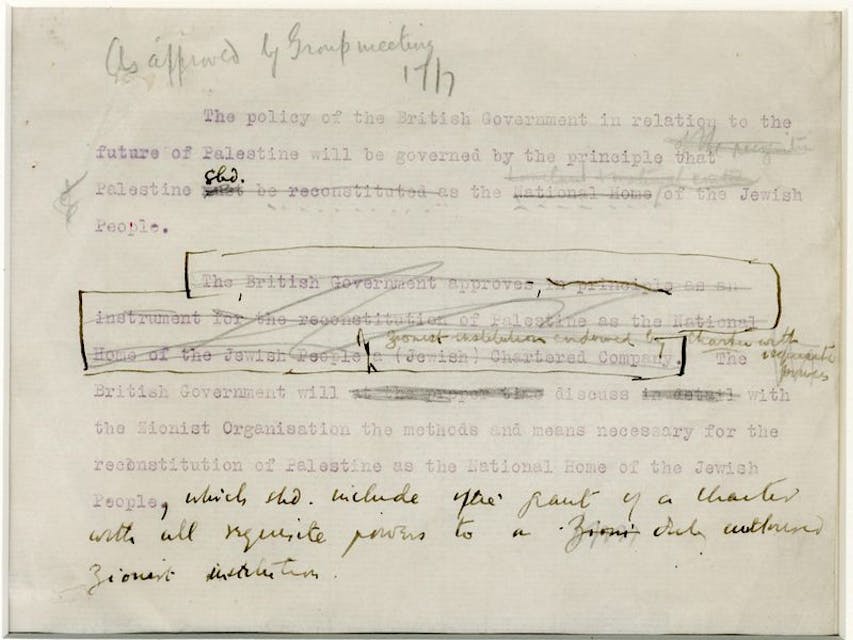 As approved by Group meeting
17/7
The policy of the British Government in relation to the
future of Palestine will be governed by the principle that
shd.
Palestine must be reconstituted as the National Home of the Jewish
People.
The British Government approves, in principle as an
instrument for the reconstitution of Palestine as the National
Zionist institution endowed by Charter with
requisite
powers
Home of the Jewish People a (Jewish) Chartered Company. The
British Government will at the proper time discuss in detail with
the Zionist Organisation the methods and means necessary for the
reconstitution of Palestine as the National Home of the Jewish
People, which shd. include the grant of a Charter
with all requisite powers to a Zioni duly authorised
Zionist institution.